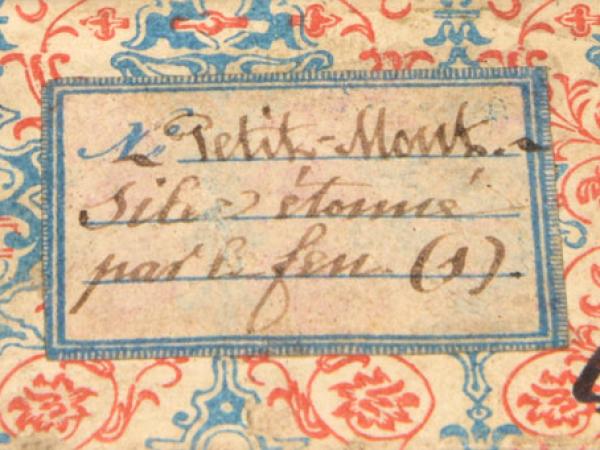 Le Petit-Mont.-
Silex étonné
par le feu. (1).